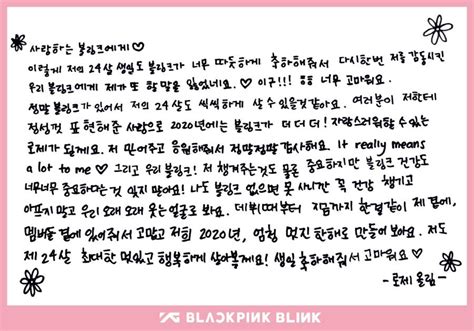 사랑하는 블링크에게♡
이렇게 저의 24살 생일도 블링크가 너무 따뜻하게 축하해줘서 다시한번 저를 감동시킨
우리 블링크에게 제가 또 할 말을 잃었네요. ♡ 이구!!! ㅠㅠ 너무 고마워요.
정말 블링크가 있어서 저의 24살도 씩씩하게 살 수 있을것 같아요. 여러분이 저한테
정성껏 표현해준 사랑으로 2020년에는 블링크가 더 더 더! 자랑스러워할 수 있는
로제가 될게요. 저 믿어주고 응원해줘서 정말정말 감사해요. It really means
a lot to me ♡ 그리고 우리 블링크! 저 챙겨주는것도 물론 중요하지만 블링크 건강도
너무너무 중요하다는 것 잊지 말아요! 나도 블링크 없으면 못 사니깐 꼭 건강 챙기고
아프지 말고 우리 오래오래 웃는 얼굴로 봐요. 데뷔때부터 지금까지 한결같이 제 곁에,
멤버들 곁에 있어줘서 고맙고 저희 2020년, 엄청 멋진 한해로 만들어 봐요. 저도
제 24살 최대한 멋있고 행복하게 살아볼게요! 생일 축하해줘서 고마워요♡
-로제 올림-
YG BLACKPINK BLINK